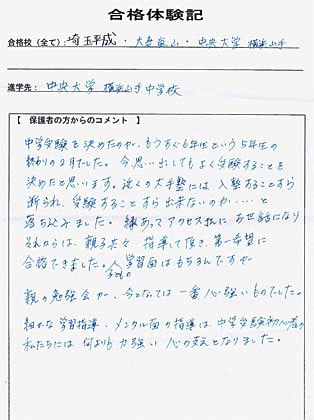 合格体験記
合格校（全て）: 埼玉平成 ・ 大妻嵐山 ・ 中央大学 横浜山手
進学先： 中央大学 横浜山手 中学校
【 保護者の方からのコメント 】
中学受験を決めたのが、もうすぐ6年生という5年生の
終わりの2月でした。今思い出してもよく受験することを
決めたと思います。近くの大手塾には入塾することすら
断られ、受験することすら出来ないのか……と
落ち込みました。縁あってアクセスさんにお世話になり
それからは、親子共々 指導して頂き、第一希望に
合格できました。子どもの学習面はもちろんですが
親の勉強会が、今となっては一番心強いものでした。
細かな学習指導・メンタル面の指導は中学受験初心者の
私たちには何よりも力強い 心の支えとなりました。